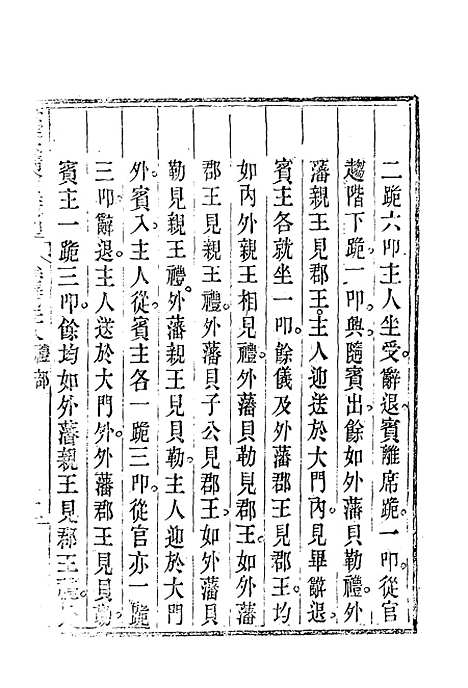 二跪六叩主人坐受辭退賓離席跪一叩從官
趨階下跪一叩興隨賓出餘如外藩貝勒禮外
藩親王見郡王主人迎送於大門內見畢辭退
賓主各就坐一叩餘儀及外藩郡王見郡王均
如內外親王相見禮外藩貝勒見郡王如外藩
郡王見親王禮外藩貝子公見郡王如外藩貝
勒見親王禮外藩親王見貝勒主人迎於大門
外賓入主人從賓主各一跪三叩從官亦一跪
三叩辭退主人送於大門外外藩郡王見貝勒
賓主一跪三叩餘均如外藩親王見郡王
禮部